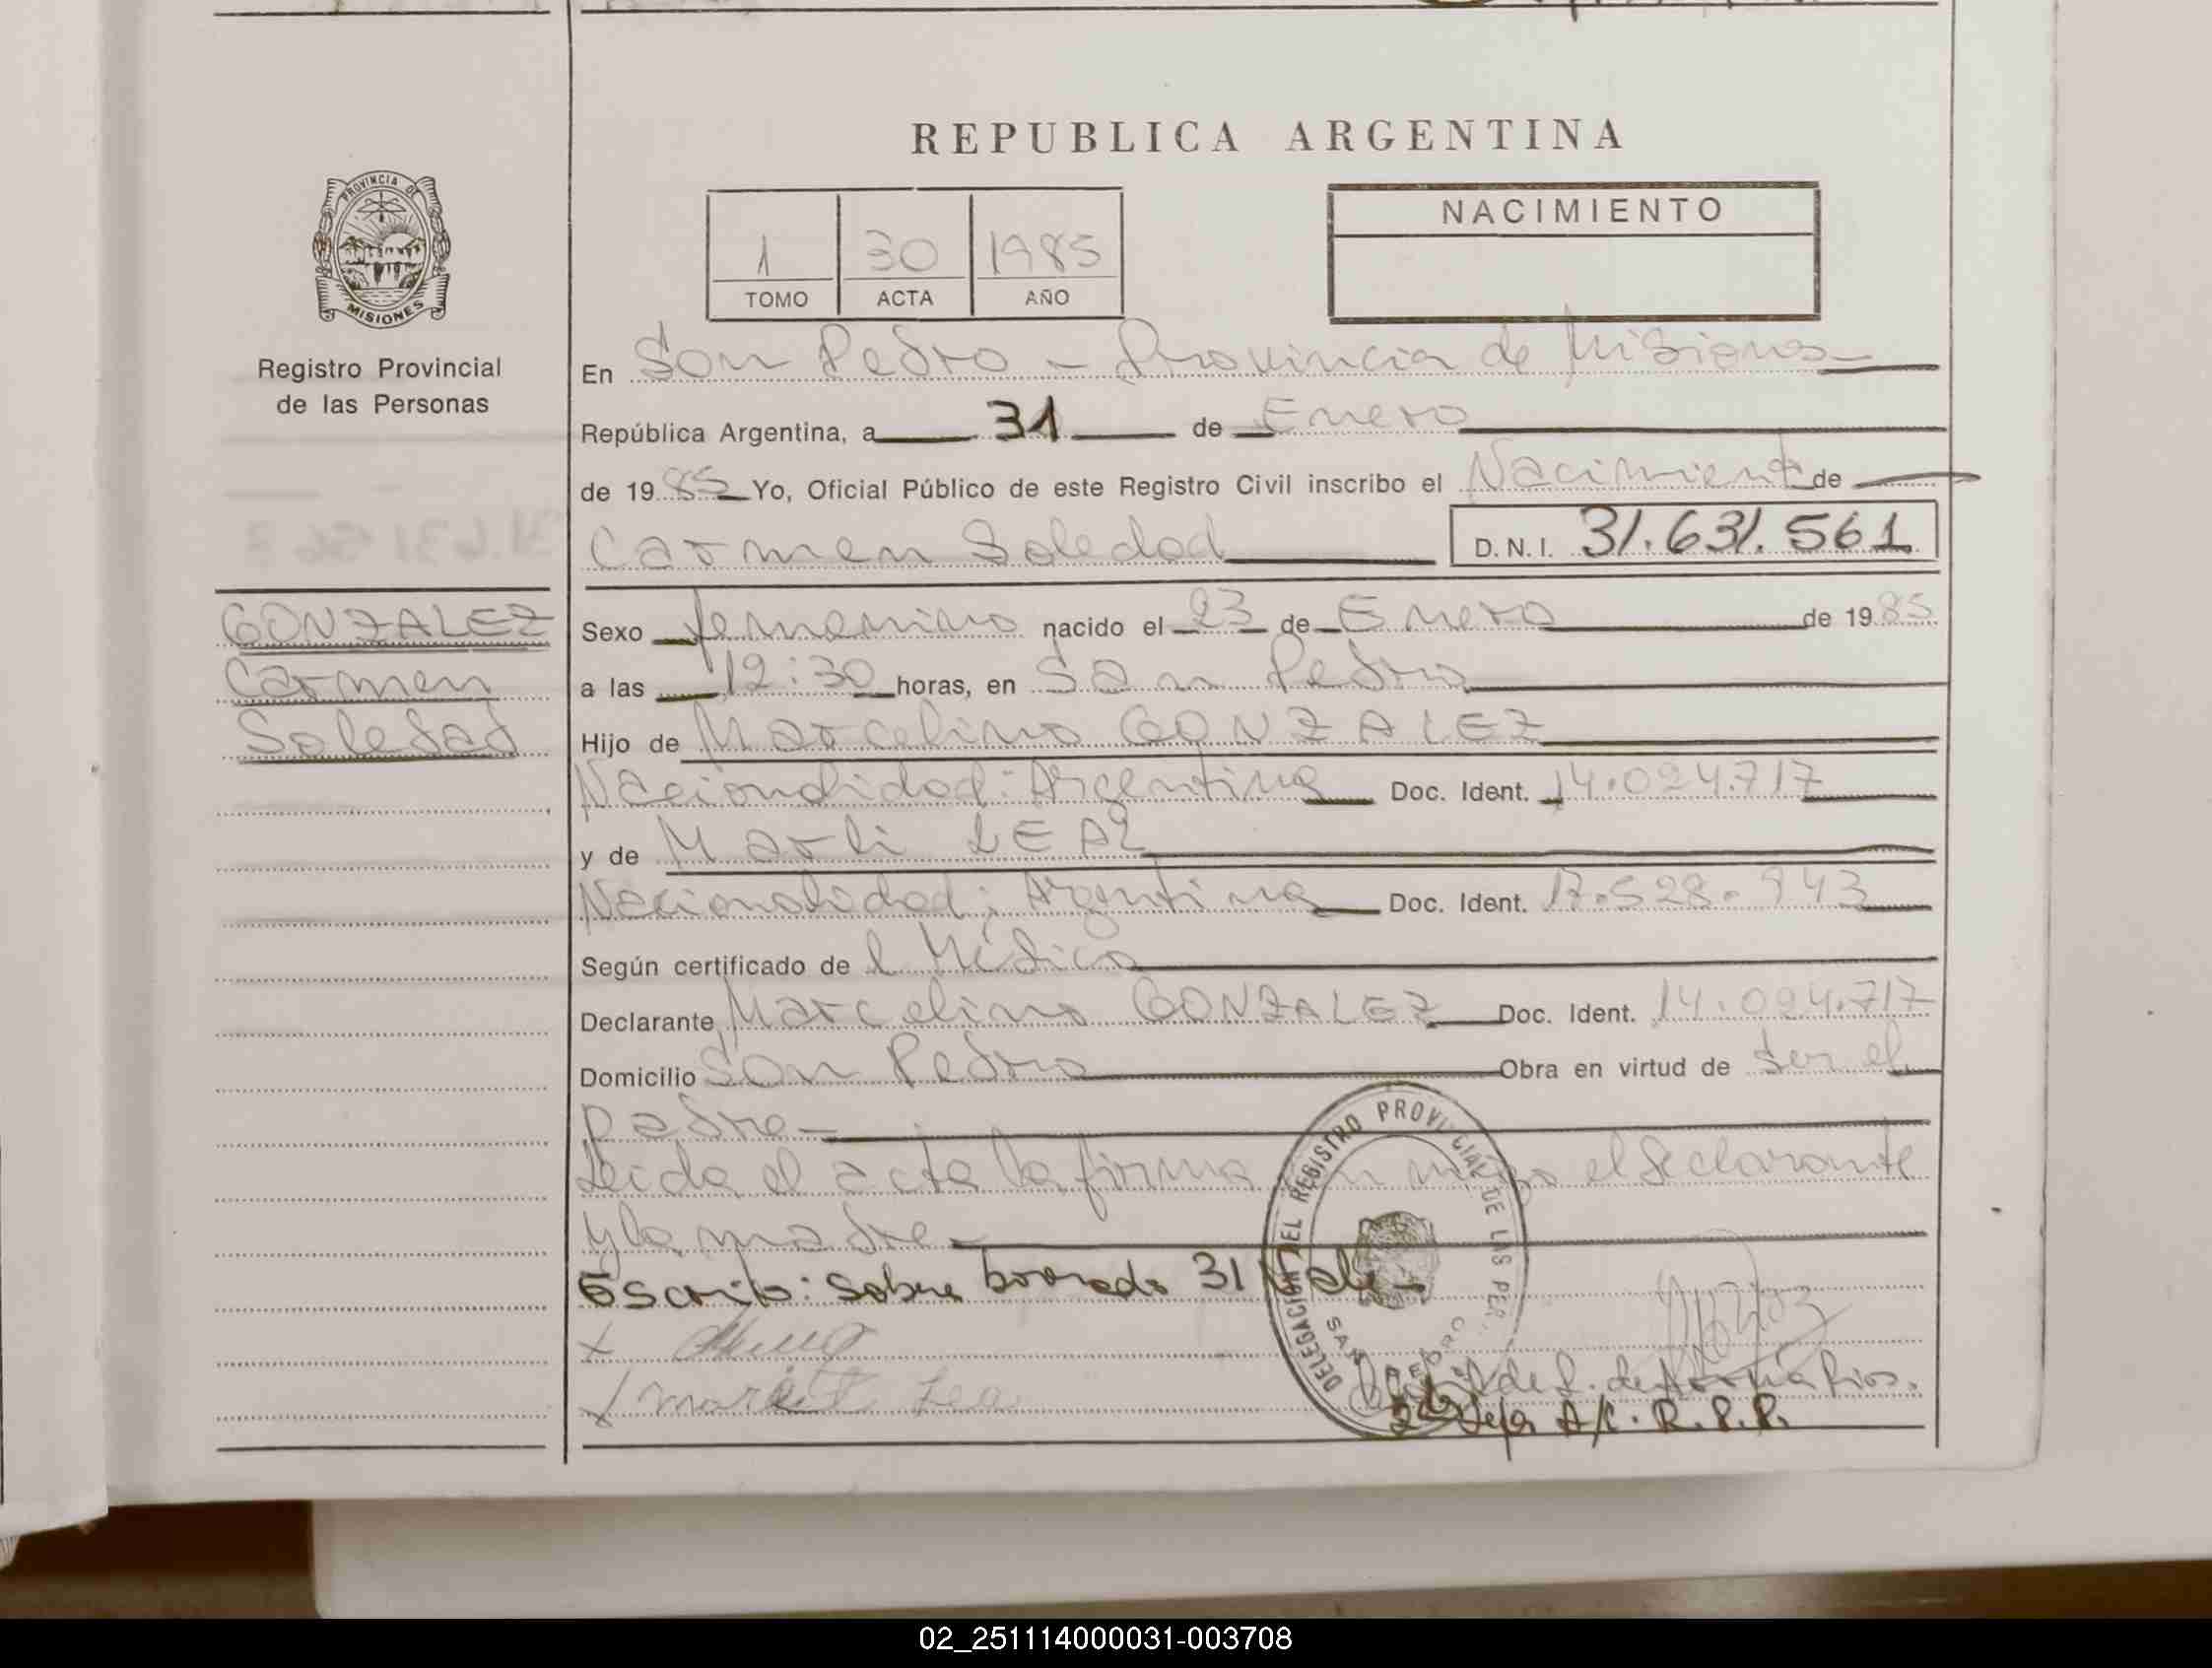 REPUBLICA ARGENTINA
PROVINCIA DE
MISIONES
Registro Provincial
de las Personas
1 30 1985
TOMO ACTA AÑO
NACIMIENTO
En San Pedro - Provincia de Misiones
República Argentina, a 31 de Enero
de 1985 Yo, Oficial Público de este Registro Civil inscribo el Nacimiento de
Carmen Soledad D.N.I. 31.631.561
GONZALEZ
Carmen
Soledad
Sexo femenino nacido el 23 de Enero de 1985
a las 12:30 horas, en San Pedro
Hijo de Marcelino GONZALEZ
Nacionalidad: Argentina Doc. Ident. 14.024.717
y de Marli LEAL
Nacionalidad: Argentina Doc. Ident. 17.528.943
Según certificado de l Médico
Declarante Marcelino GONZALEZ Doc. Ident. 14.024.717
Domicilio San Pedro Obra en virtud de ser el
padre-
Leida el acta la firma el declarante
y la madre-
Escrito: sobre borrado 31 Vale-
DELEGACION DEL REGISTRO PROVINCIAL DE LAS PER.
SAN PEDRO
A/C. R.P.P.
02_251114000031-003708